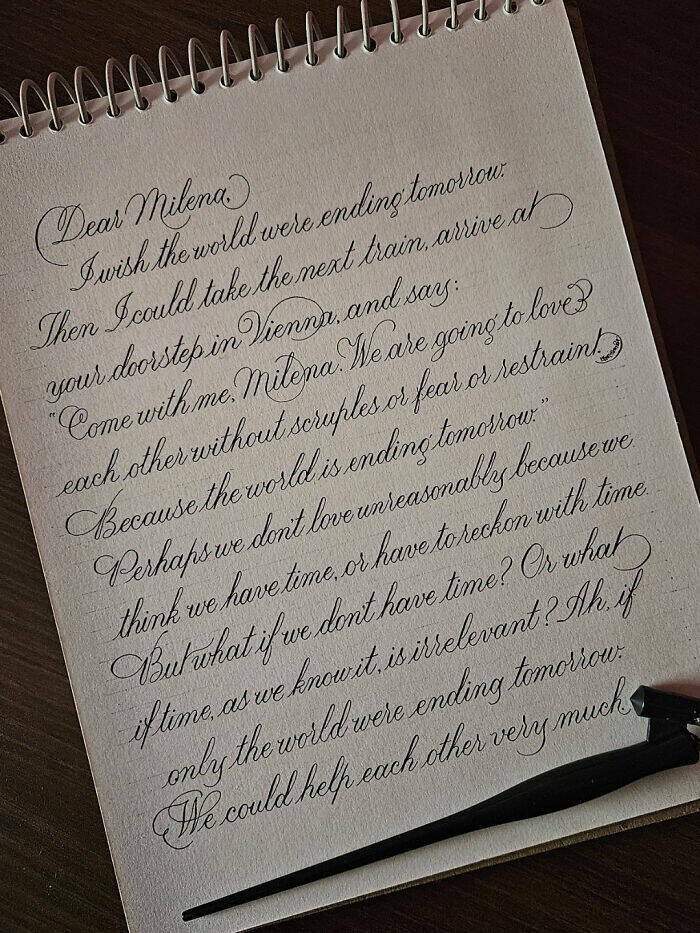 Dear Milena,
I wish the world were ending tomorrow.
Then I could take the next train, arrive at
your doorstep in Vienna, and say:
"Come with me, Milena. We are going to love
each other without scruples or fear or restraint.
Because the world is ending tomorrow."
Perhaps we don't love unreasonably because we
think we have time, or have to reckon with time.
But what if we don't have time? Or what
if time, as we know it, is irrelevant? Ah, if
only the world were ending tomorrow.
We could help each other very much.